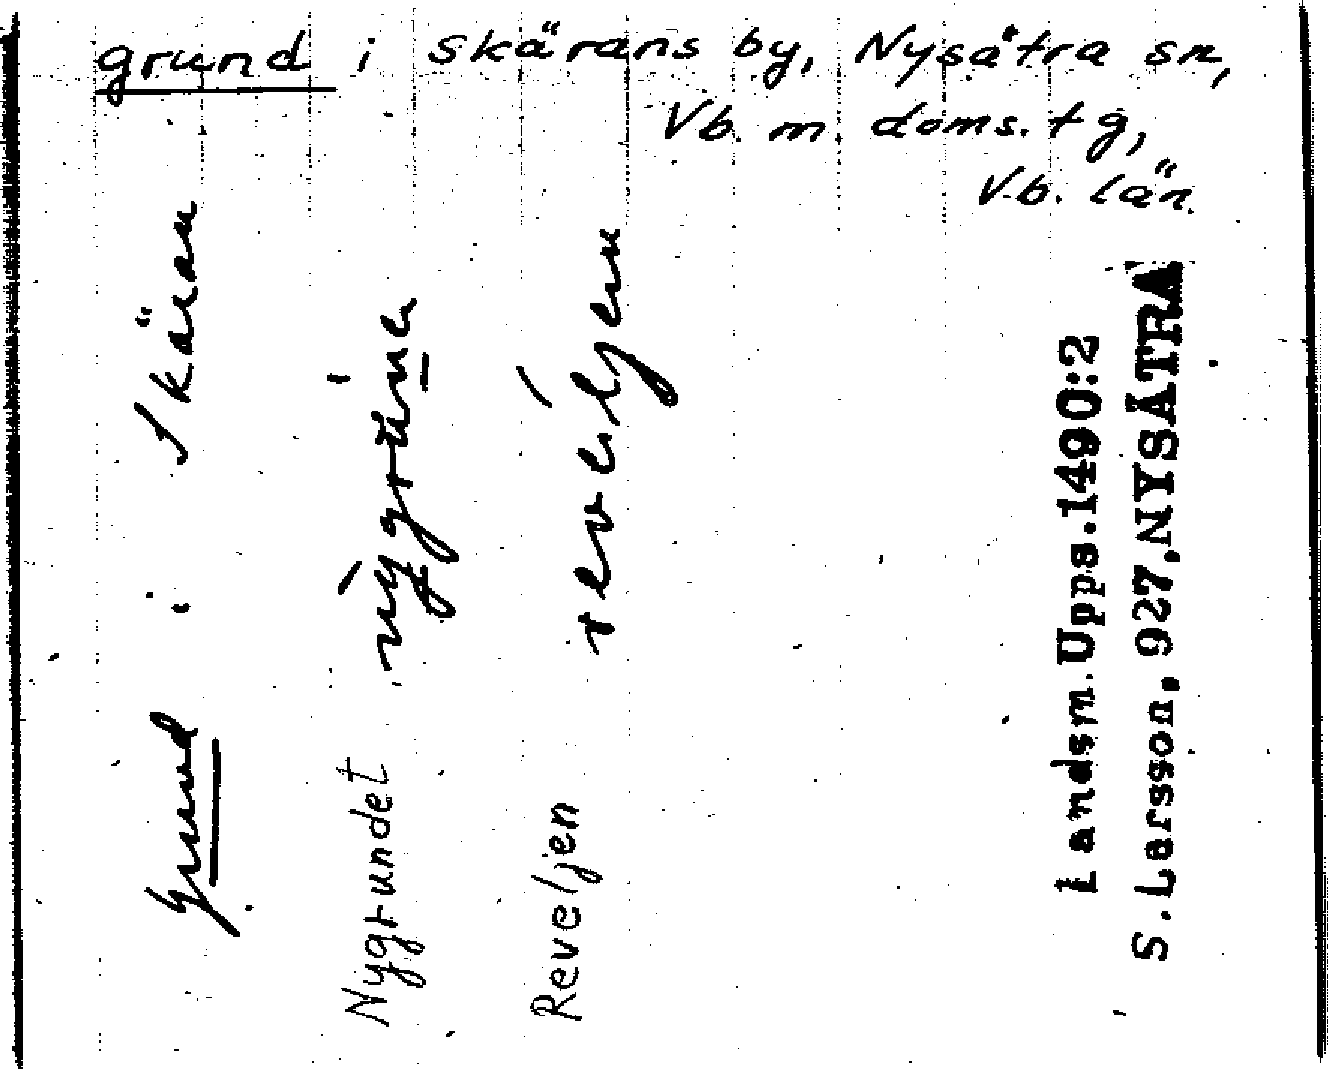 grund i Skärans by, Nysätra sn,
Vb. m. doms. tg,
Vb. län.
Grund i Skäran
Nygrundet
Reveljen revéljen
Landsm. Upps. 1490:2
S. Larsson, 927, NYSÄTRA